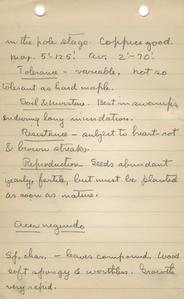 in the pole stage. Coppice good.
Max. 5'-125'. Av. 2'-70'.
Tolerance - variable, not so
tolerant as hard maple.
Soil & Moisture. Best in swamps
enduring long inundation.
Resistance - subject to heart-rot
& brown streaks.
Reproduction. Seeds abundant
yearly, fertile, but must be planted
as soon as mature.
Acer negundo
Sf. char. - leaves compound. Wood
soft spongy & worthless. Growth
very rapid.